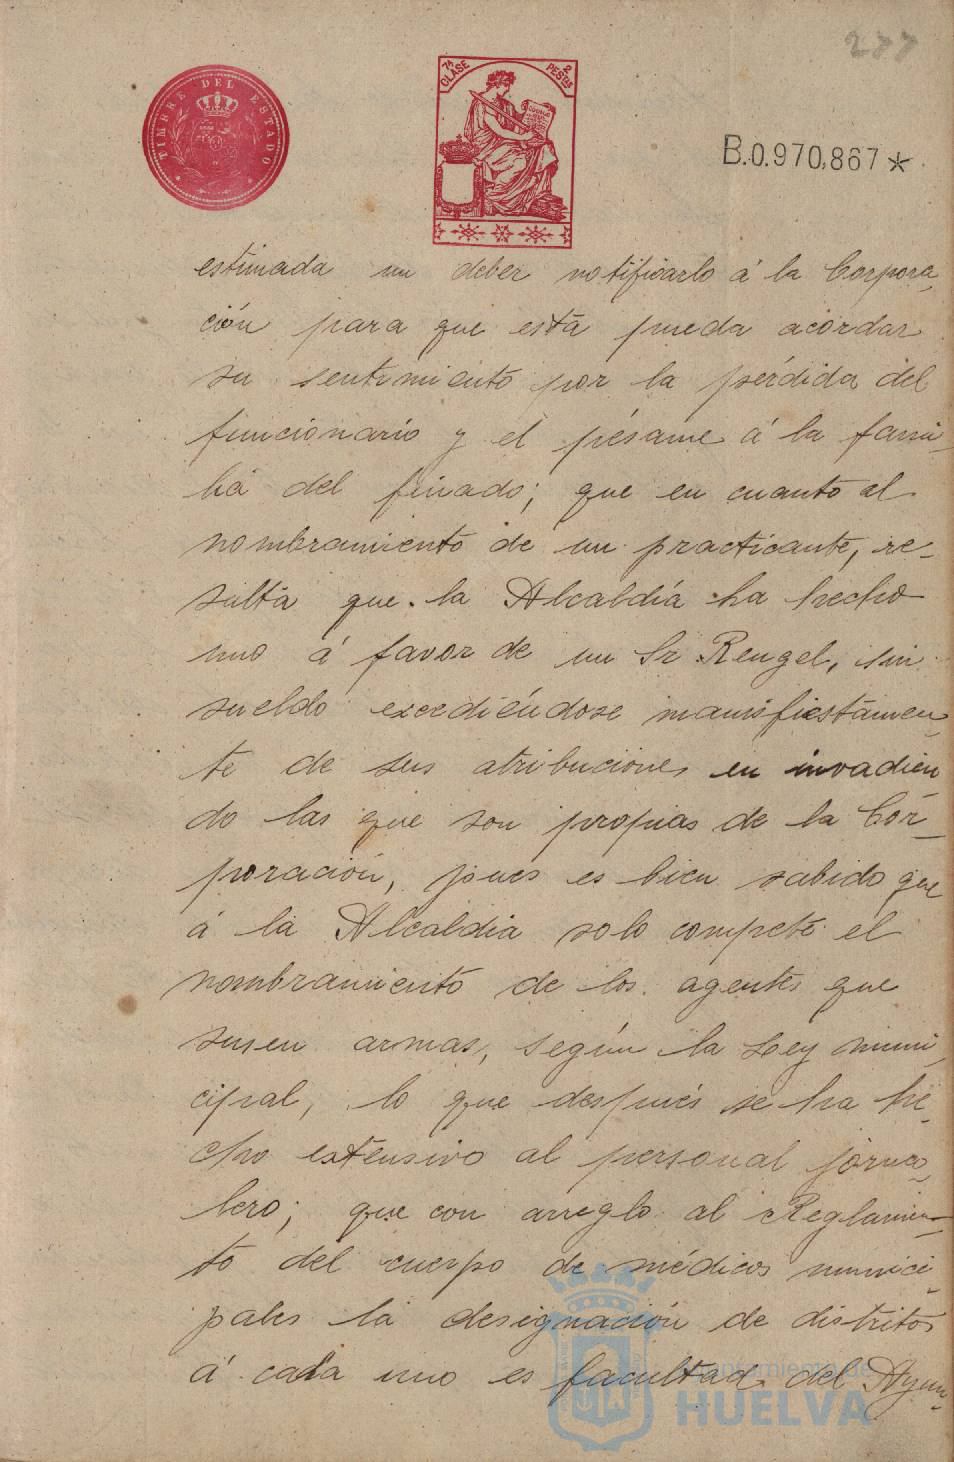 277
TIMBRE DEL ESTADO
7ª CLASE
2 PESTAS
B.0.970,867*
estimada un deber notificarlo á la Corpora-
ción para que está pueda acordar
su sentimiento por la pérdida del
funcionario y el pésame á la fami-
lia del finado; que en cuanto al
nombramiento de un practicante, re-
sulta que la Alcaldía ha hecho
uno á favor de un Sr Rengel, sin
sueldo excediéndose manifiestamen-
te de sus atribuciones en invadien-
do las que son propias de la Cor-
poración, pues es bien sabido que
á la Alcaldia solo compete el
nombramiento de los agentes que
usen armas, según la Ley muni-
cipal, lo que después se ha he-
cho extensivo al personal jorna-
lero; que con arreglo al Reglamen-
to del cuerpo de médicos munici-
pales la designación de distritos
á cada uno es facultad del Ayun-
Ayuntamiento de
HUELVA